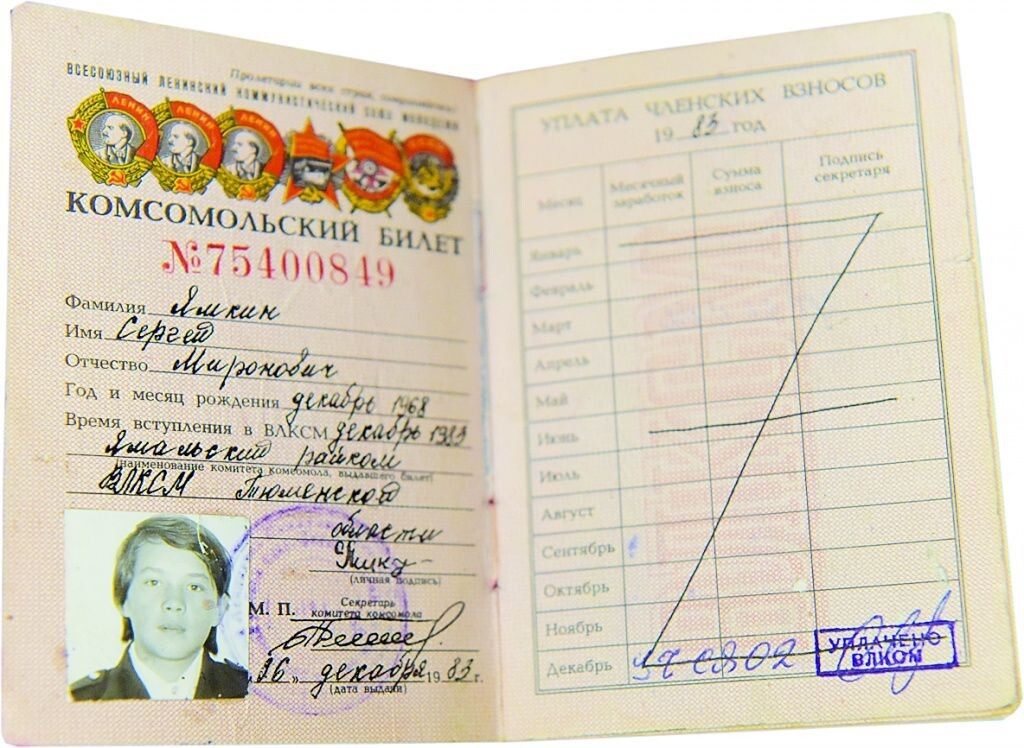 Пролетарии всех стран, соединяйтесь!
ВСЕСОЮЗНЫЙ ЛЕНИНСКИЙ КОММУНИСТИЧЕСКИЙ СОЮЗ МОЛОДЕЖИ
ЛЕНИН ЛЕНИН ЛЕНИН
КОМСОМОЛЬСКИЙ БИЛЕТ
№75400849
Фамилия Ямкин
Имя Сергей
Отчество Миронович
Год и месяц рождения декабрь 1968
Время вступления в ВЛКСМ декабрь 1983
Ямальский райком
(наименование комитета комсомола, выдавшего билет)
ВЛКСМ Тюменской
области
(личная подпись)
М. П. Секретарь
комитета комсомола
„26" декабря 1983 г.
(дата выдачи)
УПЛАТА ЧЛЕНСКИХ ВЗНОСОВ
19 83 год
Месяц Месячный заработок Сумма взноса Подпись секретаря
Январь
Февраль
Март
Апрель
Май
Июнь
Июль
Август
Сентябрь
Октябрь
Ноябрь
Декабрь 02
УПЛАЧЕНО
ВЛКСМ